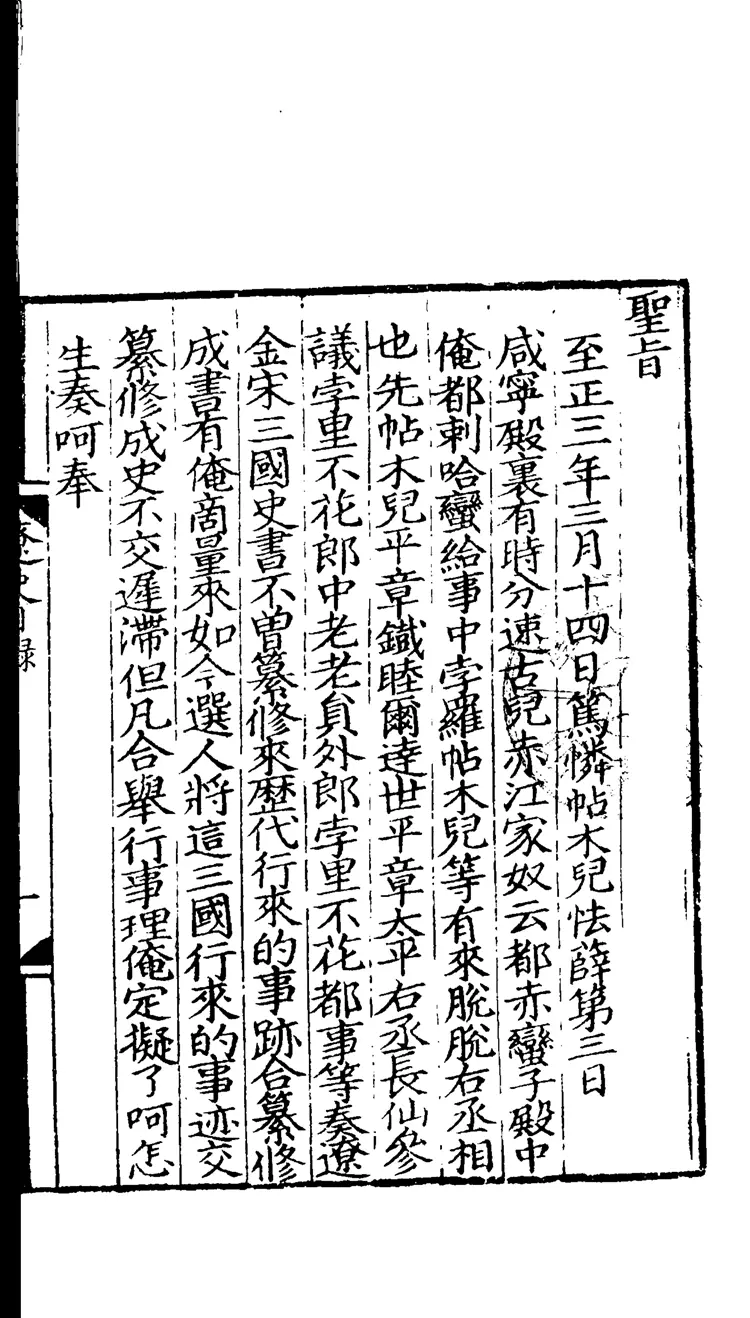 聖旨
至正三年三月十四日篤憐帖木兒怯薛第三日
咸寧殿裏有時分速古兒赤江家奴云都赤蠻子殿中
俺都剌哈蠻給事中孛羅帖木兒等有來脫脫右丞相
也先帖木兒平章鐵睦爾達世平章太平右丞長仙參
議孛里不花郎中老老貟外郎孛里不花都事等奏遼
金宋三國史書不曾纂修來歷代行來的事跡合纂修
成書有俺商量來如今選人將這三國行來的事迹交
纂修成史不交遲滯但凡合舉行事理俺定擬了呵怎
生奏呵奉
史目録
一